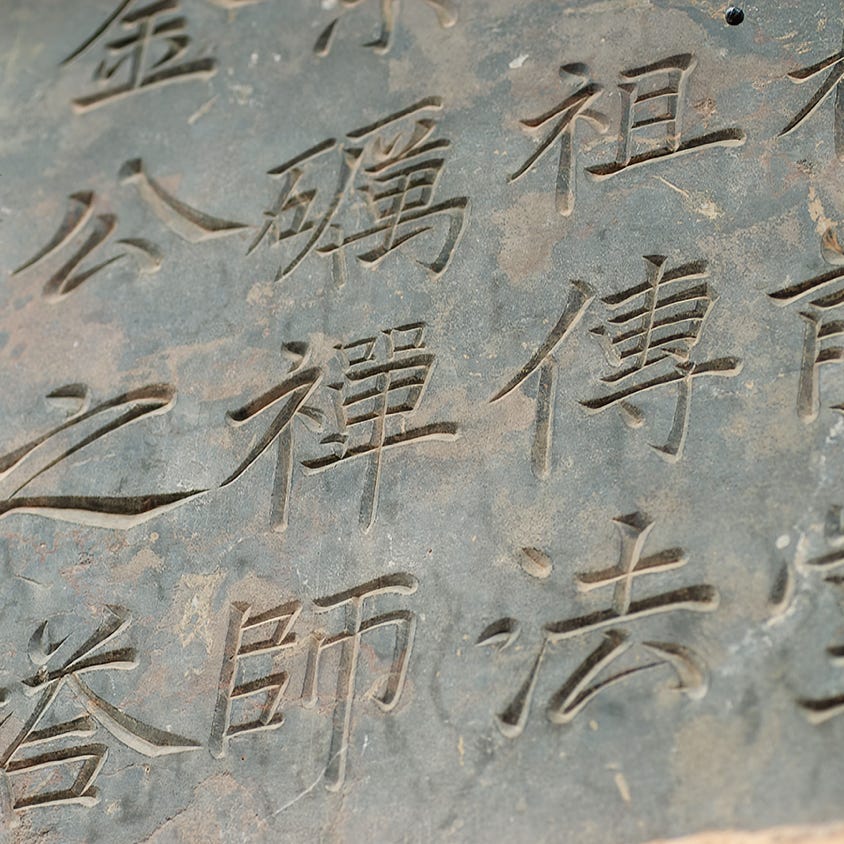 祖傳法
礪禪師
金公之塔